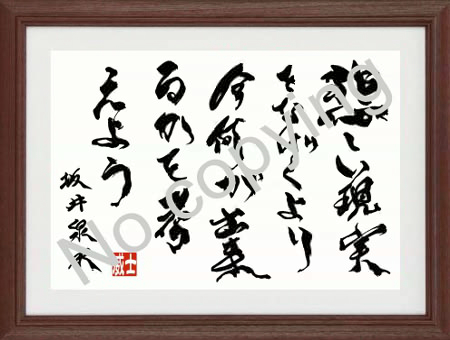 悲しい現実
をなげくより
今何が出来
るかを考
えよう
坂井泉水
No copying